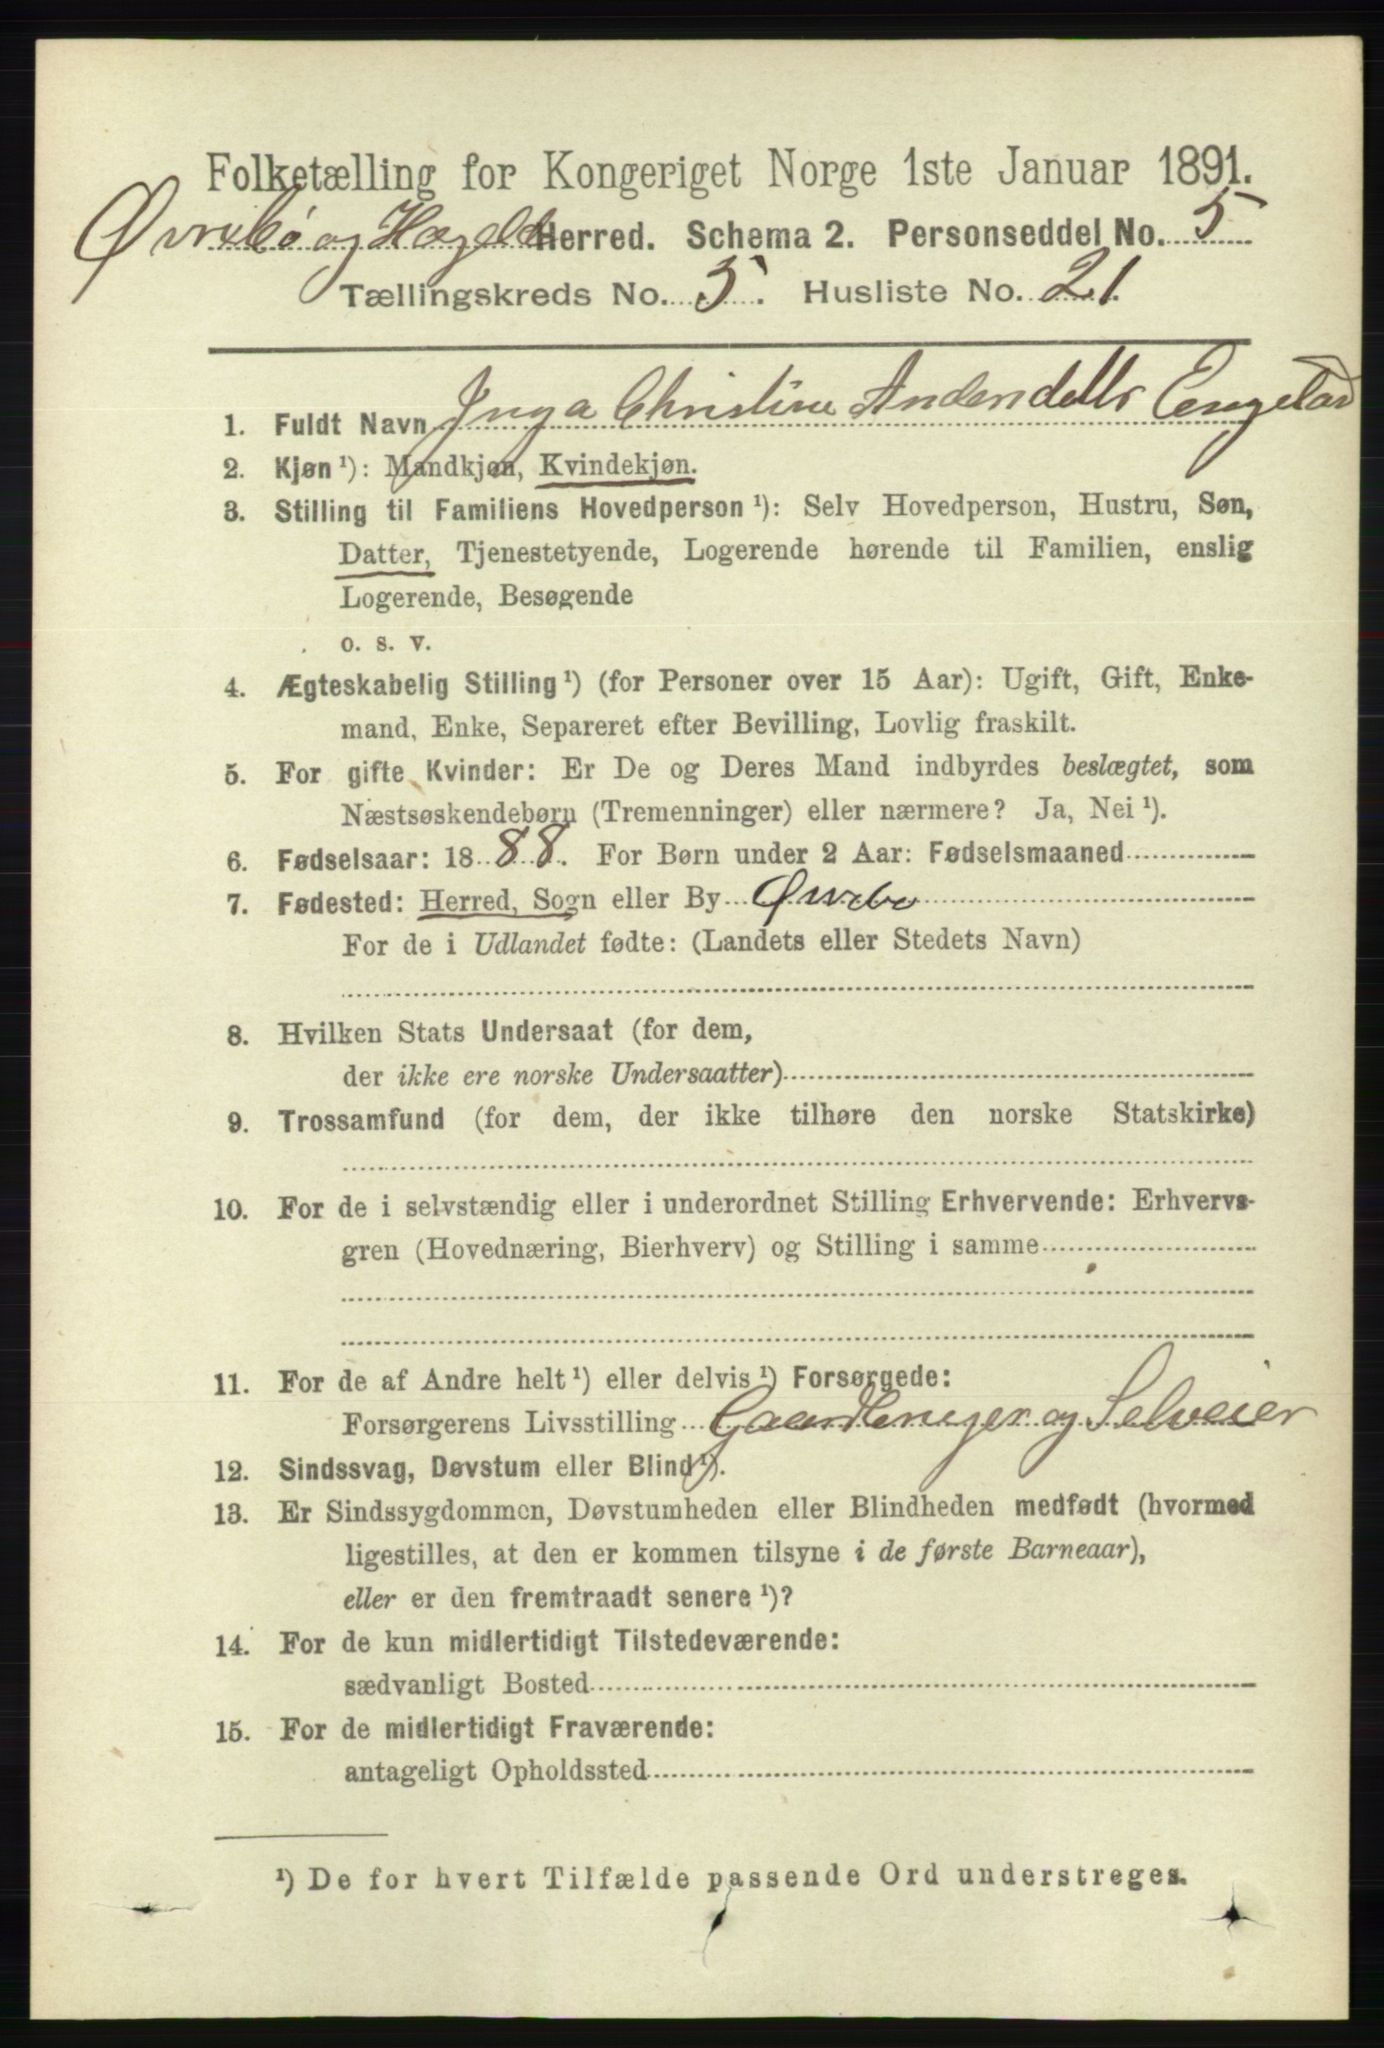 Folketælling for Kongeriget Norge 1ste Januar 1891.
Øvrebø og Hægeld Herred. Schema 2. Personseddel No. 5
Tællingskreds No. 5. Husliste No. 21.
1. Fuldt Navn Inga Christine Andersdatter Engelad
2. Kjøn ¹): Mandkjøn, Kvindekjøn.
3. Stilling til Familiens Hovedperson ¹): Selv Hovedperson, Hustru, Søn,
Datter, Tjenestetyende, Logerende hørende til Familien, enslig
Logerende, Besøgende
o. s. v.
4. Ægteskabelig Stilling ¹) (for Personer over 15 Aar): Ugift, Gift, Enke-
mand, Enke, Separeret efter Bevilling, Lovlig fraskilt.
5. For gifte Kvinder: Er De og Deres Mand indbyrdes beslægtet, som
Næstsøskendebørn (Tremenninger) eller nærmere? Ja, Nei ¹).
6. Fødselsaar: 1888. For Børn under 2 Aar: Fødselsmaaned
7. Fødested: Herred, Sogn eller By Øvrebø
For de i Udlandet fødte: (Landets eller Stedets Navn)
8. Hvilken Stats Undersaat (for dem,
der ikke ere norske Undersaatter)
9. Trossamfund (for dem, der ikke tilhøre den norske Statskirke)
10. For de i selvstændig eller i underordnet Stilling Erhvervende: Erhvervs-
gren (Hovednæring, Bierhverv) og Stilling i samme
11. For de af Andre helt ¹) eller delvis ¹) Forsørgede:
Forsørgerens Livsstilling Gaardbruger og Selveier
12. Sindssvag, Døvstum eller Blind ¹).
13. Er Sindssygdommen, Døvstumheden eller Blindheden medfødt (hvormed
ligestilles, at den er kommen tilsyne i de første Barneaar),
eller er den fremtraadt senere ¹)?
14. For de kun midlertidigt Tilstedeværende:
sædvanligt Bosted
15. For de midlertidigt Fraværende:
antageligt Opholdssted
¹) De for hvert Tilfælde passende Ord understreges.